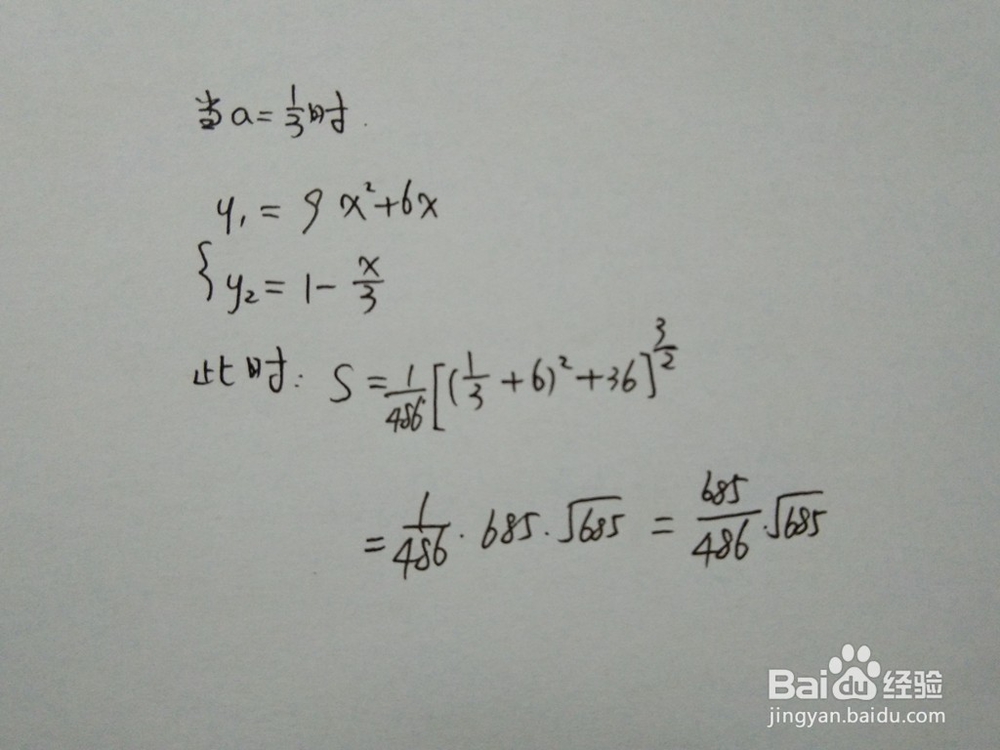 当a=1/3时.
y₁=9x²+6x
{y₂=1-x/3
此时: S=1/486[(1/3+6)²+36]^(3/2)
=1/486·685·√685=685/486·√685
Baidu经验
jingyan.baidu.com